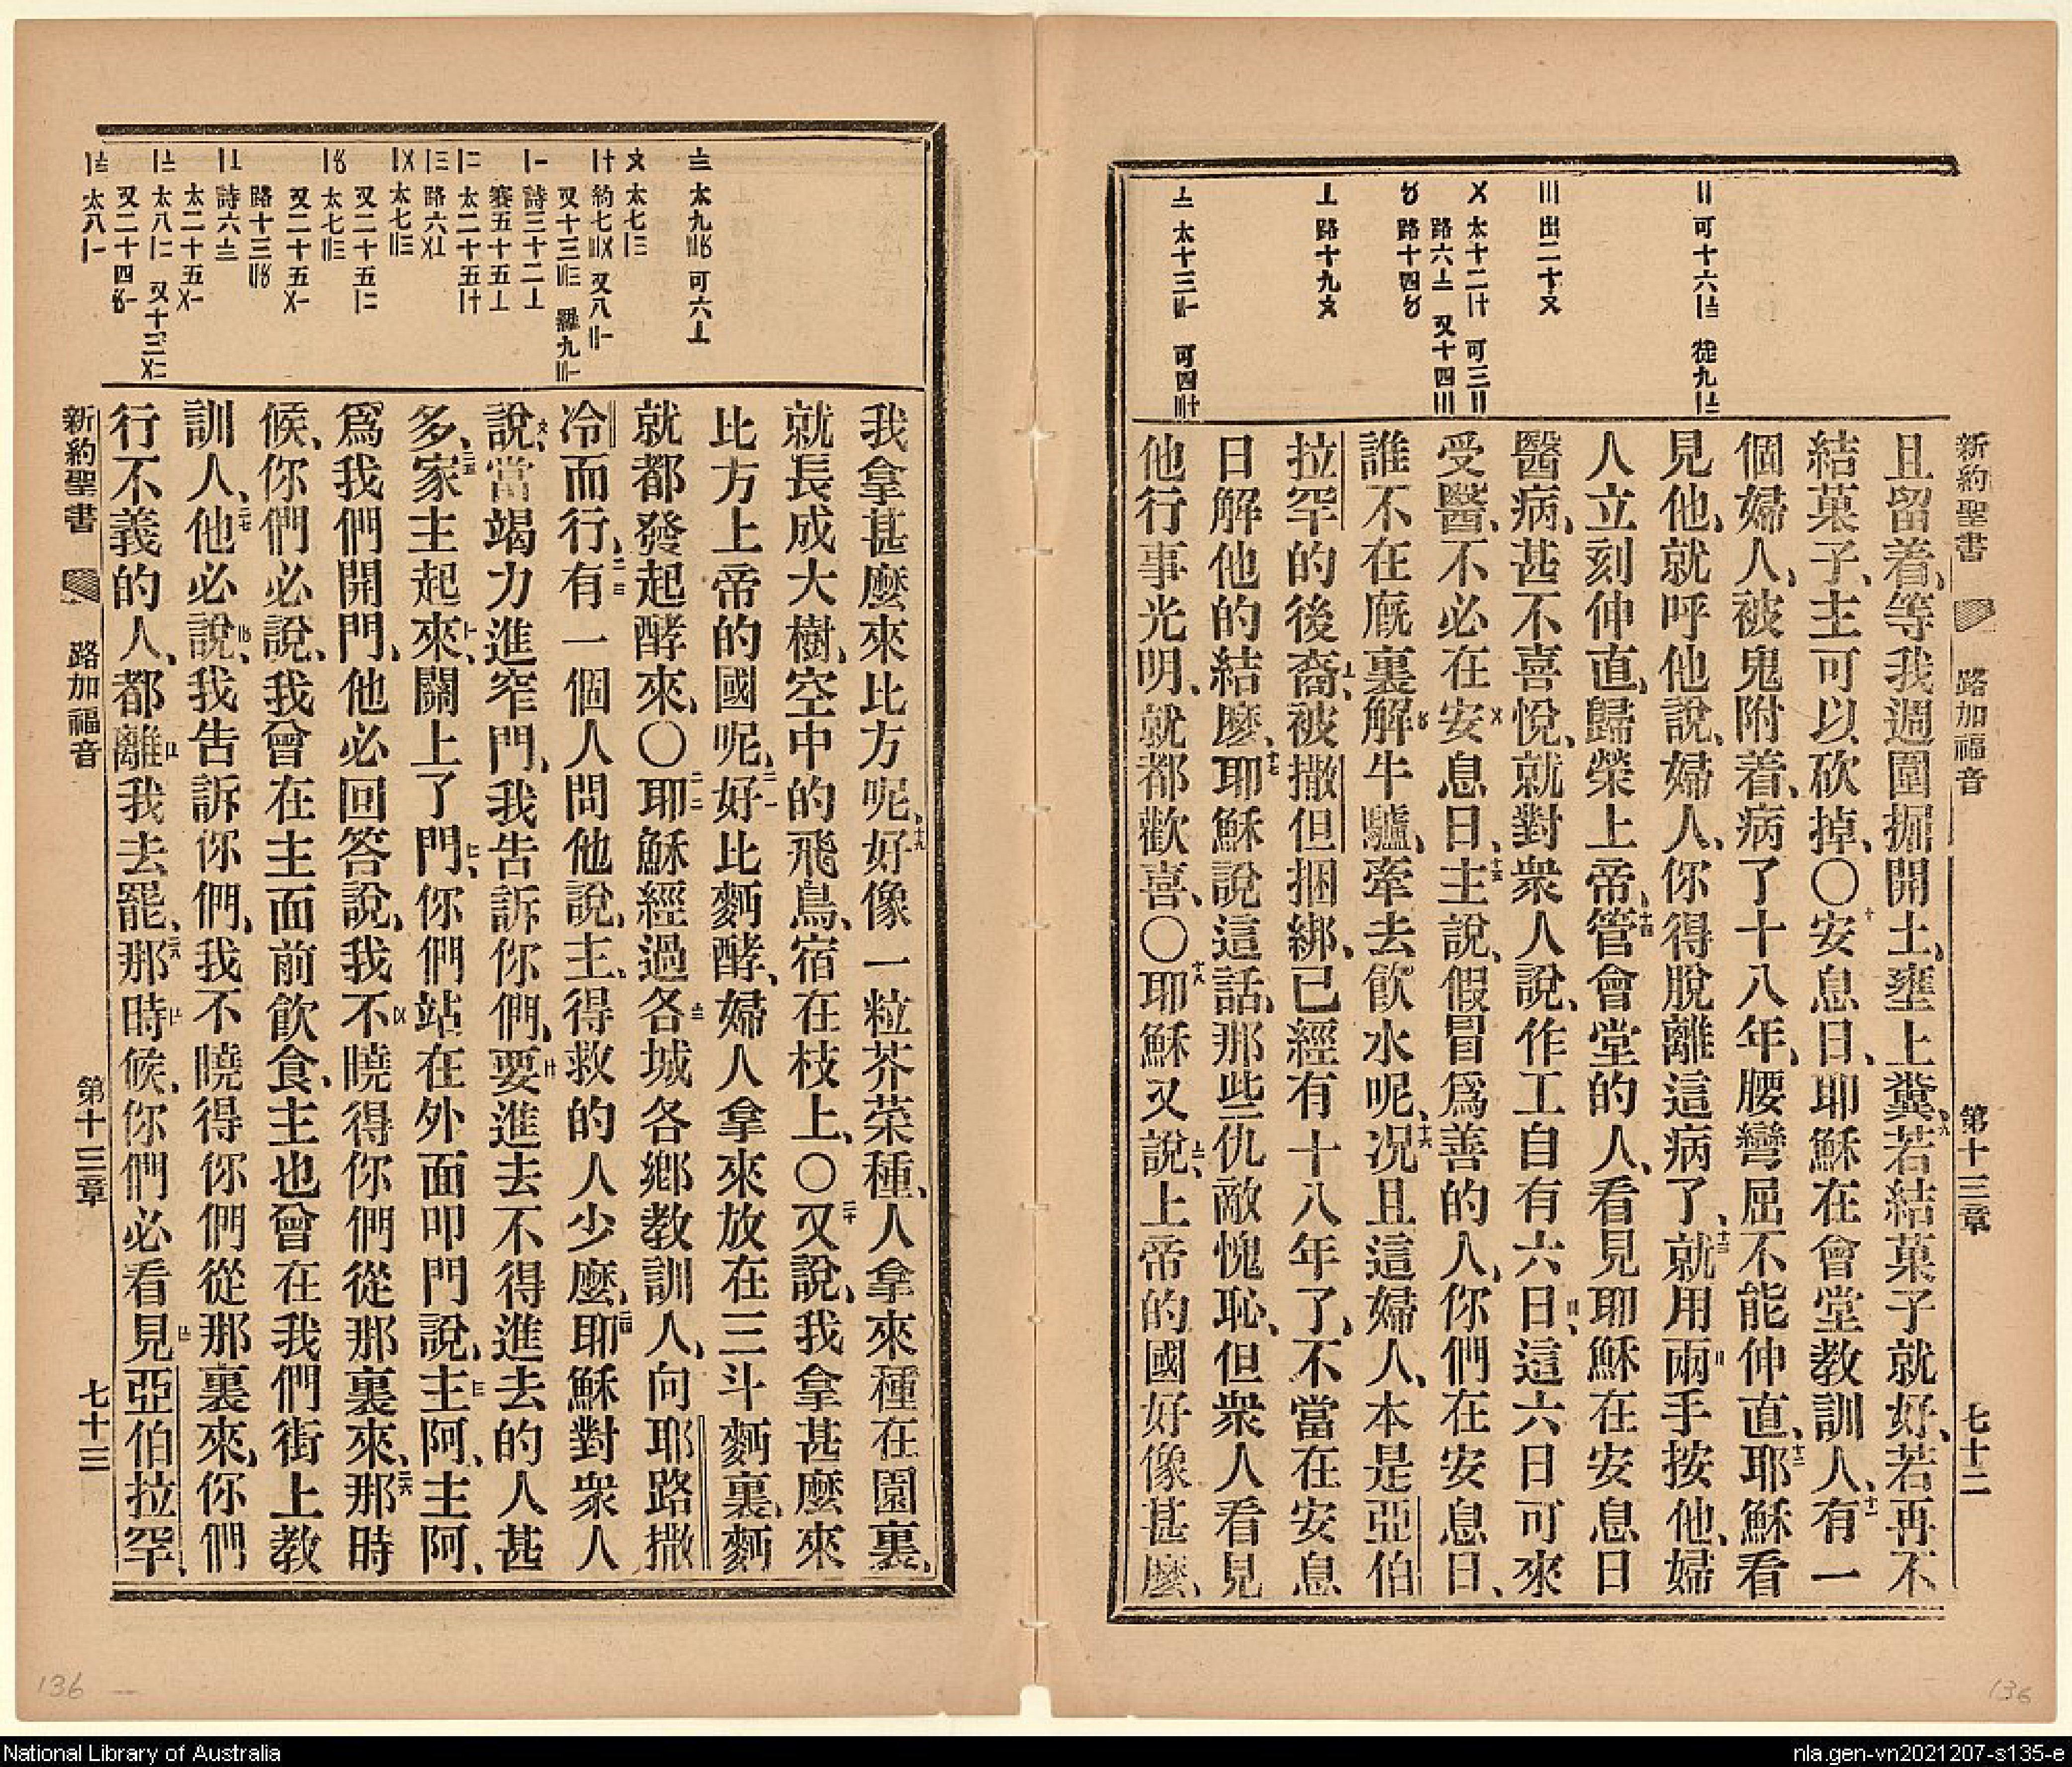 新約聖書 路加福音 第十三章 七十二
且留着、等我週圍掘開土、壅上糞、九若結菓子就好、若再不
結菓子、主可以砍掉、〇十安息日、耶穌在會堂教訓人、十一有一
個婦人、被鬼附着、病了十八年、腰彎屈不能伸直、十二耶穌看
見他、就呼他說、婦人、你得脫離這病了、十三就用兩手按他、婦
人立刻伸直、歸榮上帝、十四管會堂的人、看見耶穌在安息日
醫病、甚不喜悅、就對衆人說、作工自有六日、這六日可來
受醫、不必在安息日、十五主說、假冒爲善的人、你們在安息日、
誰不在廐裏解牛驢、牽去飮水呢、十六況且這婦人、本是亞伯
拉罕的後裔、被撒但捆綁、已經有十八年了、不當在安息
日解他的結麼、十七耶穌說這話、那些仇敵愧恥、但衆人看見
他行事光明、就都歡喜、〇十八耶穌又說、上帝的國好像甚麼、
新約聖書 路加福音 第十三章 七十三
我拿甚麼來比方呢、十九好像一粒芥菜種、人拿來種在園裏、
就長成大樹、空中的飛鳥、宿在枝上、〇二十又說、我拿甚麼來
比方上帝的國呢、二一好比麪酵、婦人拿來放在三斗麪裏、麪
就都發起酵來、〇二二耶穌經過各城各鄉教訓人、向耶路撒
冷而行、二三有一個人問他說、主、得救的人少麼、二四耶穌對衆人
說、當竭力進窄門、我告訴你們、要進去不得進去的人甚
多、二五家主起來、關上了門、你們站在外面叩門說、主阿、主阿、
爲我們開門、他必回答說、我不曉得你們從那裏來、二六那時
候、你們必說、我曾在主面前飮食、主也曾在我們街上教
訓人、二七他必說、我告訴你們、我不曉得你們從那裏來、你們
行不義的人、都離我去罷、二八那時候、你們必看見亞伯拉罕、
136
136
National Library of Australia
nla.gen-vn2021207-s135-e